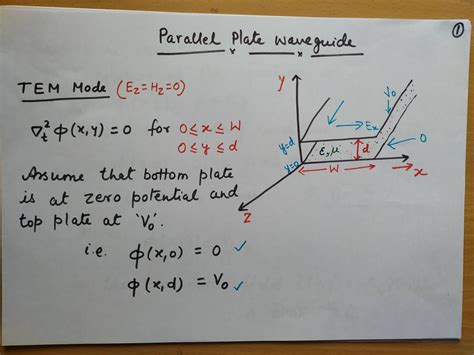 ①
Parallel Plate Waveguide
TEM Mode (Ez=Hz=0)
∇t² Φ(x,y) = 0 for 0≤x≤W
0≤y≤d
Assume that bottom plate
is at zero potential and
top plate at 'V₀'.
i.e. Φ(x,0) = 0 ✓
Φ(x,d) = V₀ ✓
y
V₀
Ex
0
y=d
ε,μ
d
y=0
W
x
z